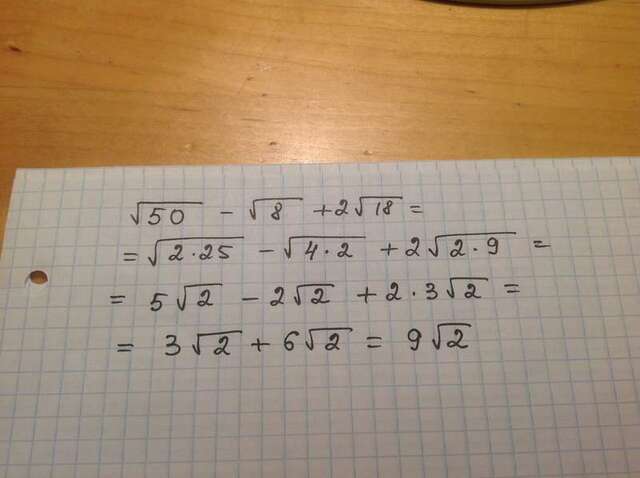 √50 − √8 + 2√18 =
= √2·25 − √4·2 + 2√2·9 =
= 5√2 − 2√2 + 2·3√2 =
= 3√2 + 6√2 = 9√2